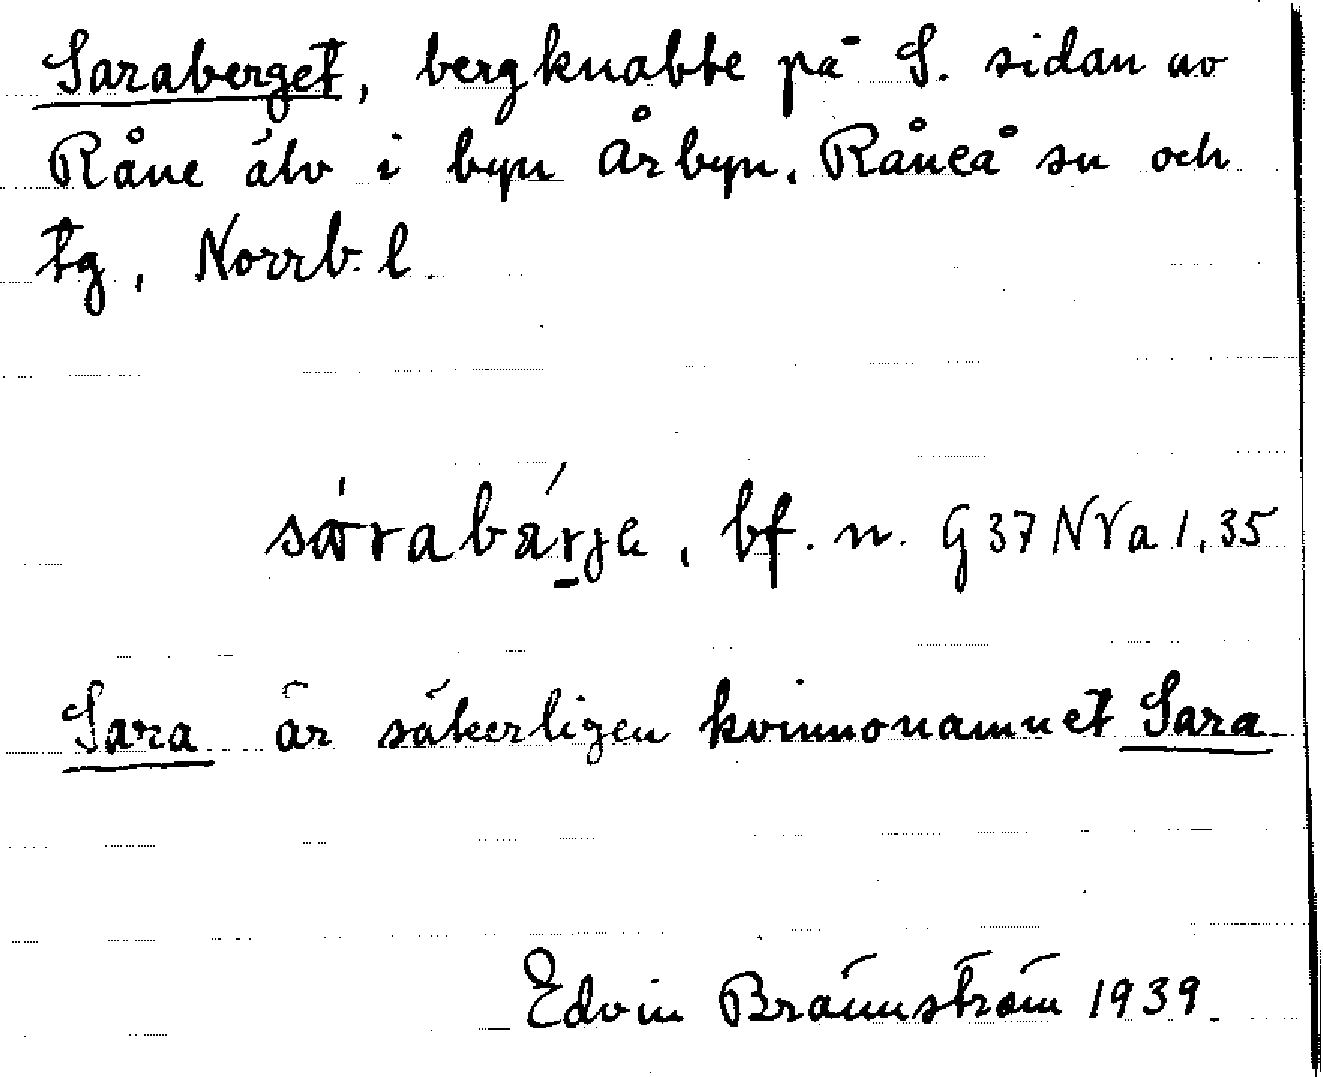 Saraberget, bergknabbe på S. sidan av
Råne älv i byn Årbyn, Råneå sn och
tg, Norrb. l.
sárabárje, bf. n. G37 NVa 1,35
Sara är säkerligen kvinnonamnet Sara
Edvin Brännström 1939.